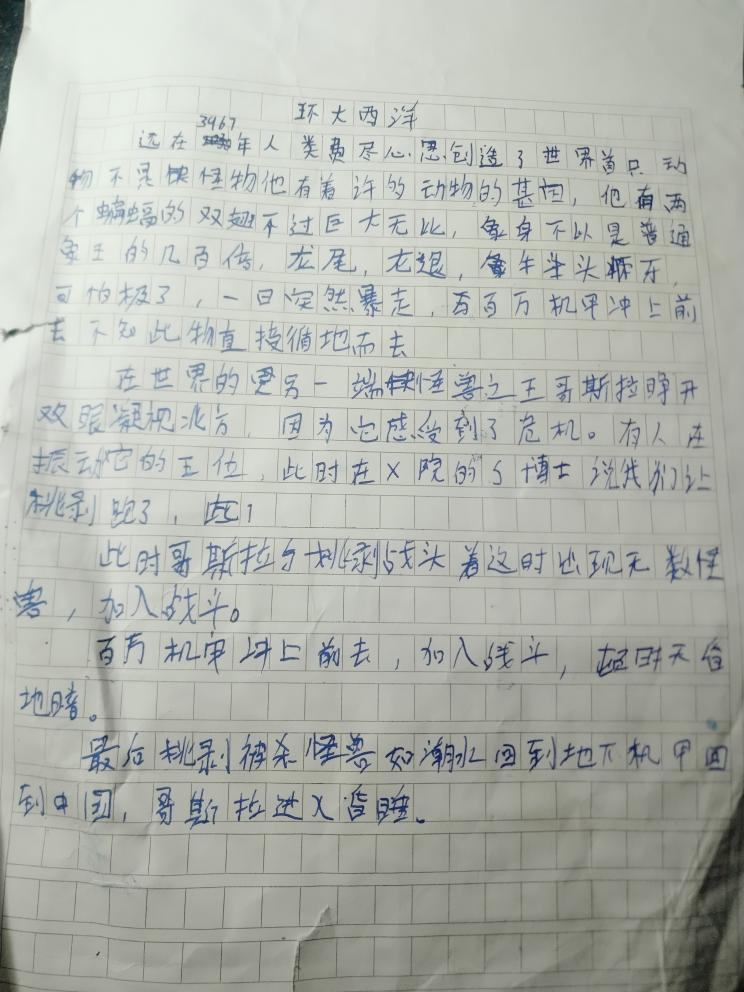 环大西洋
3967
远在年人类费尽心思创造了世界首只动
物不是怪物他有着许多动物的基因，他有两
个蝙蝠的双翅不过巨大无比，身不以是普通
象王的几百倍，龙尾，龙退，牛头，
可怕极了，一日突然暴走，百百万机甲冲上前
去不知此物直接循地而去
在世界的另一端怪兽之王哥斯拉睁开
双眼凝视北方，因为它感受到了危机。有人在
振动它的王位，此时在X院的博士说我们让
跑了，此
此时哥斯拉与战头着这时出现无数怪
兽，加入战斗。
百万机甲冲上前去，加入战斗，时天
地暗。
最后被杀怪兽如潮水回到地下机甲回
到中国，哥斯拉进入昏睡。